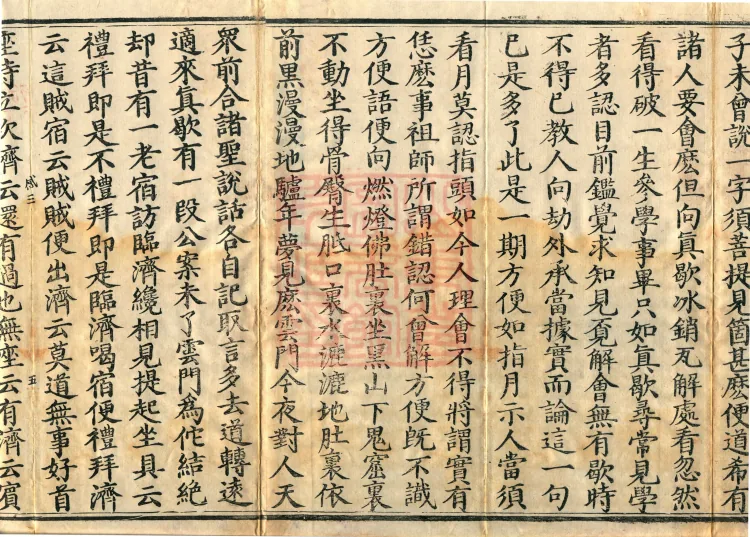 子未曾說一字須菩提見箇甚麽便道希有
諸人要會麽但向眞歇冰銷瓦解處看忽然
看得破一生參學事畢只如眞歇尋常見學
者多認目前鑑覺求知見覔解會無有歇時
不得已教人向劫外承當據實而論這一句
已是多了此是一期方便如指月示人當須
看月莫認指頭如今人理會不得將謂實有
恁麽事祖師所謂錯認何曾解方便旣不識
方便語便向燃燈佛肚裏坐黑山下鬼窟裏
不動坐得骨臀生胝口裏水漉漉地肚裏依
前黑漫漫地驢年夢見麽雲門今夜對人天
衆前合諸聖說話各自記取言多去道轉遠
適來眞歇有一段公案未了雲門爲佗結絶
却昔有一老宿訪臨濟纔相見提起坐具云
禮拜卽是不禮拜卽是臨濟喝宿便禮拜濟
云這賊宿云賊賊便出濟云莫道無事好首
咸三
五
座侍立次濟云還有過也無座云有濟云賓